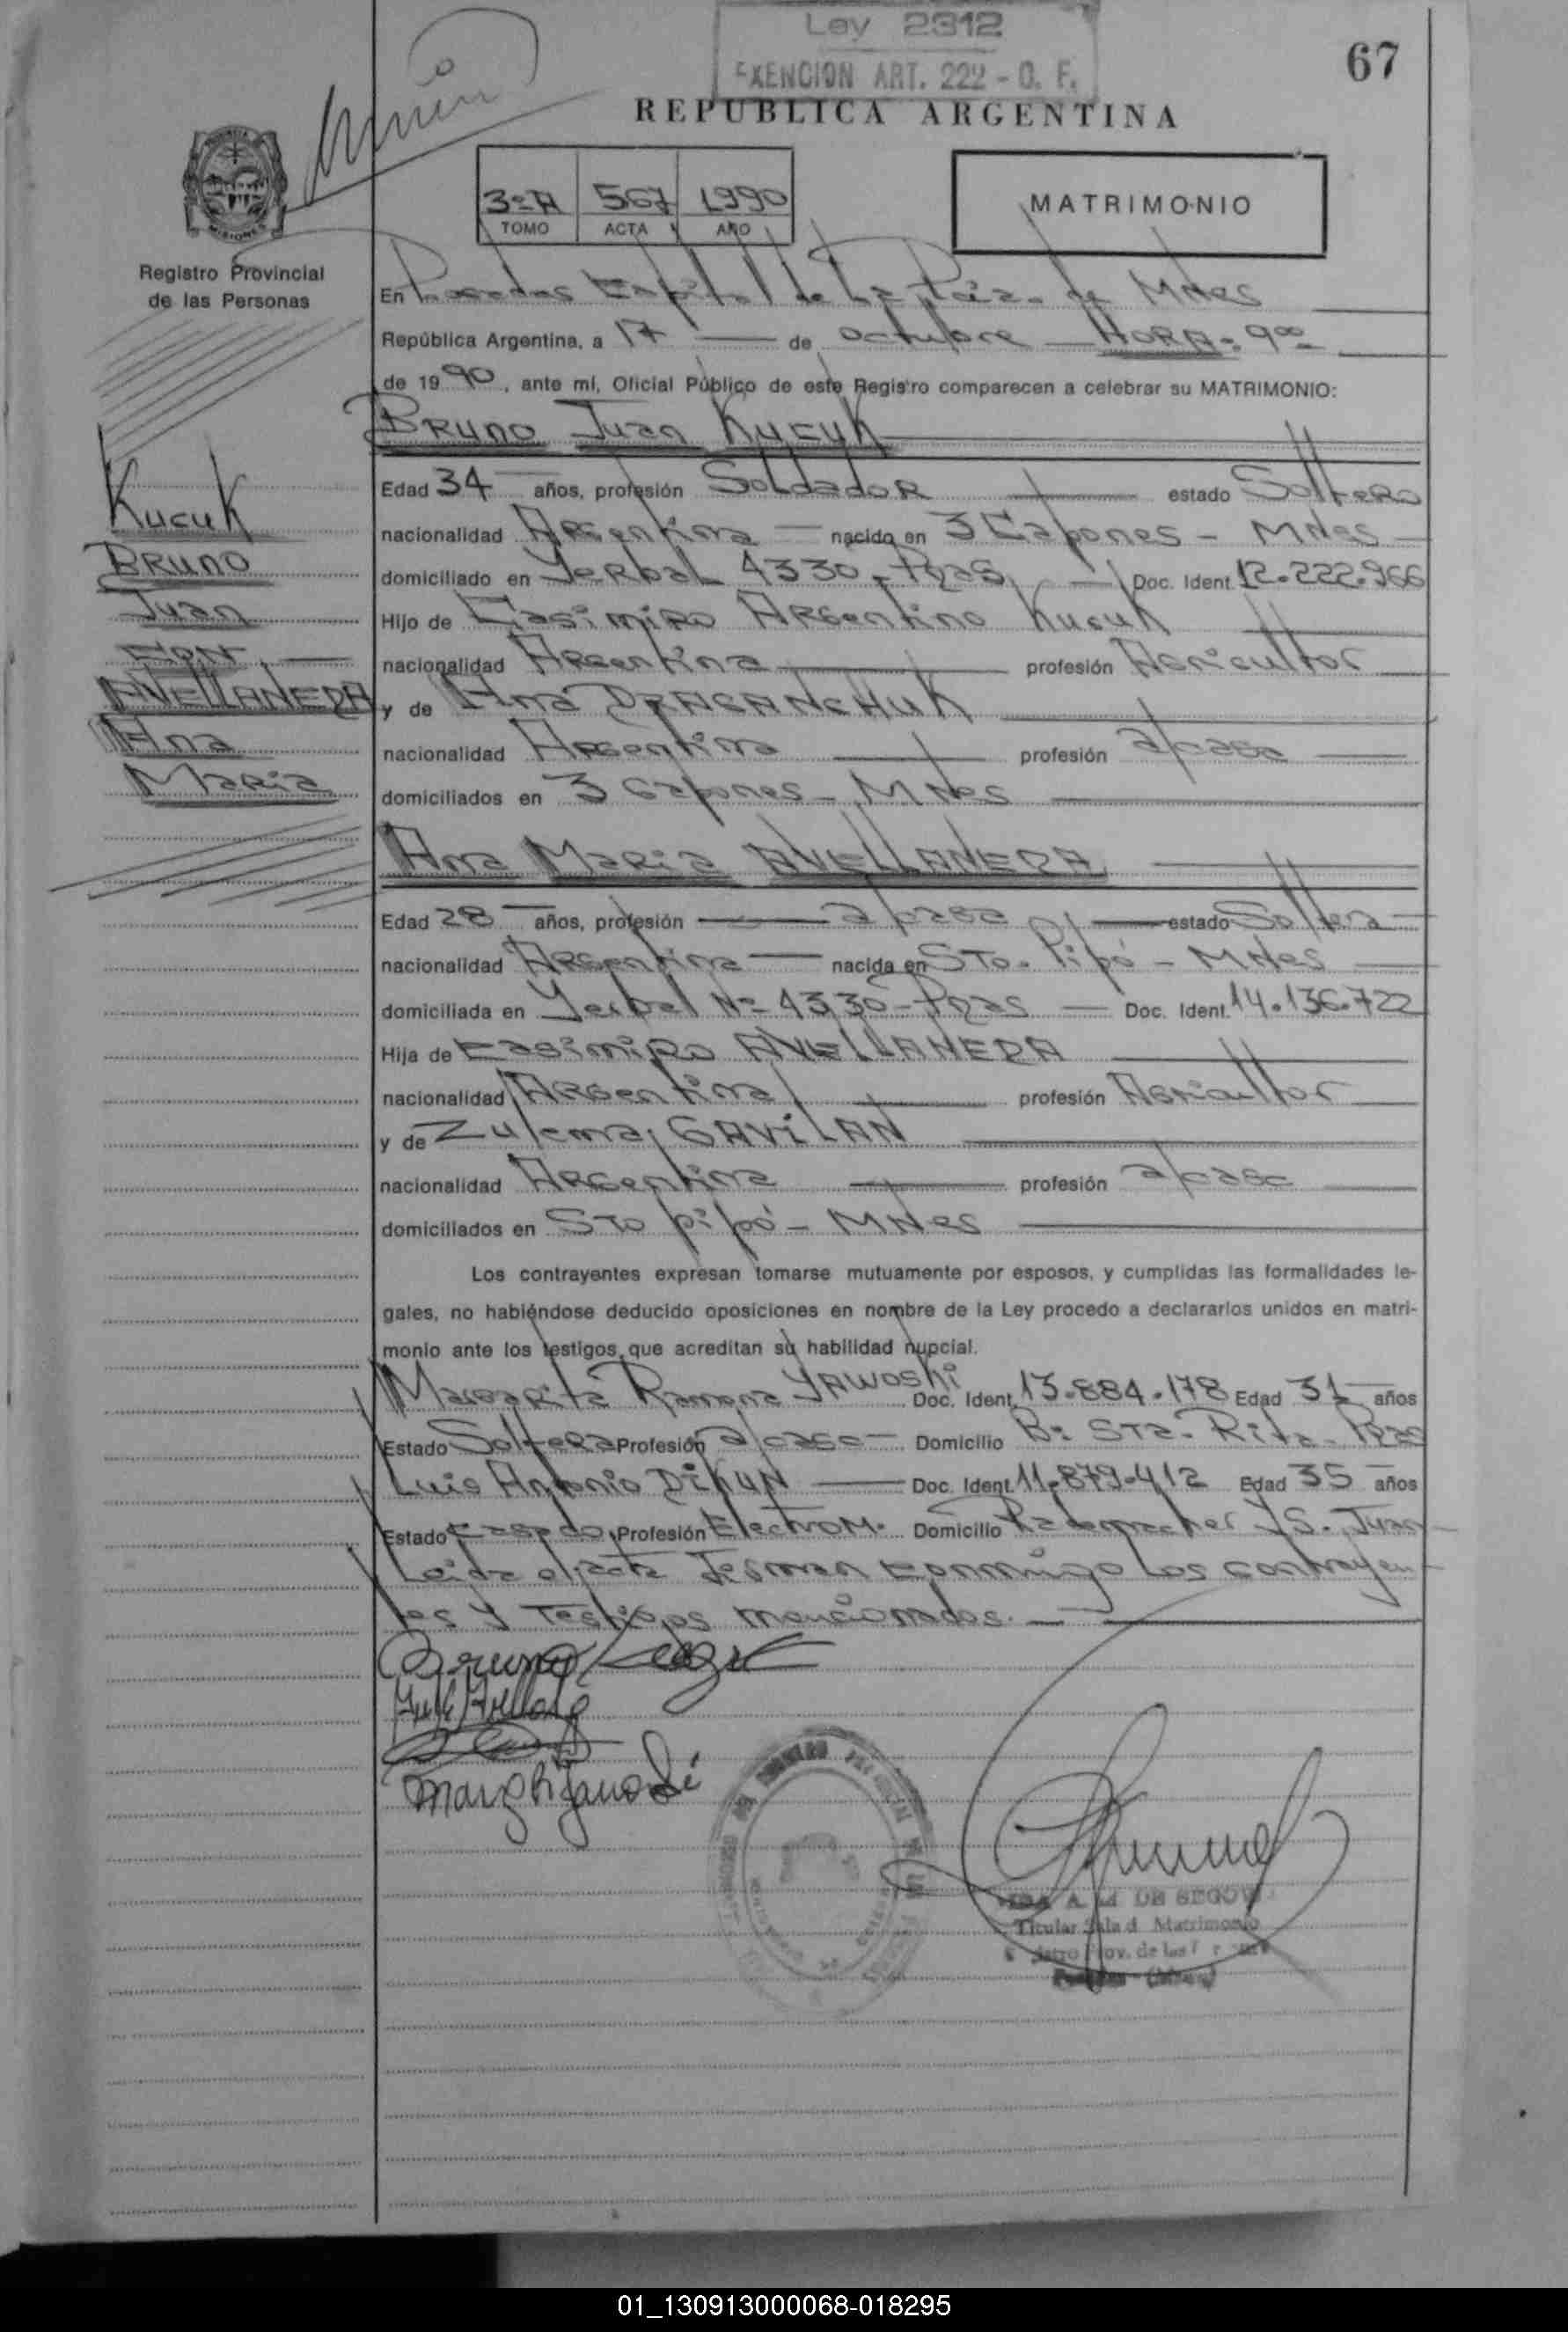 Ley 2312
EXENCION ART. 222 - C. F.
67
REPUBLICA ARGENTINA
3ºA 567 1990
TOMO ACTA AÑO
MATRIMONIO
MISIONES
Registro Provincial
de las Personas
En Posadas Capital de La Pcia. de Mnes
República Argentina, a 17 de octubre HORA: 9ºº
de 1990, ante mí, Oficial Público de este Registro comparecen a celebrar su MATRIMONIO:
Bruno Juan Kucuk
Edad 34 años, profesión Soldador estado Soltero
nacionalidad Argentina nacido en 3 Capones - Mnes
domiciliado en Yerbal 4330 - Pdas Doc. Ident. 12.222.966
Hijo de Casimiro Argentino Kucuk
nacionalidad Argentina profesión Agricultor
y de Ana DRAGANCHUK
nacionalidad Argentina profesión a/casa
domiciliados en 3 Capones - Mnes
Kucuk
Bruno
Juan
con
AVELLANEDA
Ana
Maria
Ana Maria AVELLANEDA
Edad 28 años, profesión a/casa estado Soltera
nacionalidad Argentina nacida en Sto. Pipó - Mnes
domiciliada en Yerbal Nº 4330 - Pdas Doc. Ident. 14.136.722
Hija de Casimiro AVELLANEDA
nacionalidad Argentina profesión Agricultor
y de Zulema GAVILAN
nacionalidad Argentina profesión a/casa
domiciliados en Sto pipó - Mnes
Los contrayentes expresan tomarse mutuamente por esposos, y cumplidas las formalidades le-
gales, no habiéndose deducido oposiciones en nombre de la Ley procedo a declararlos unidos en matri-
monio ante los testigos que acreditan su habilidad nupcial.
Margarita Ramona YAWOSKI Doc. Ident. 13.884.178 Edad 31 años
Estado Soltera Profesión a/casa Domicilio Bº Sta. Rita - Pdas
Luis Antonio DIKUN Doc. Ident. 11.879.412 Edad 35 años
Estado Casado Profesión Electrom. Domicilio Rademacher y S. Juan
Leida el acta firman conmigo los contrayen
tes y testigos mencionados.
A. M DE SEGOV
Titular Sala d Matrimonio
Prov. de las
01_130913000068-018295